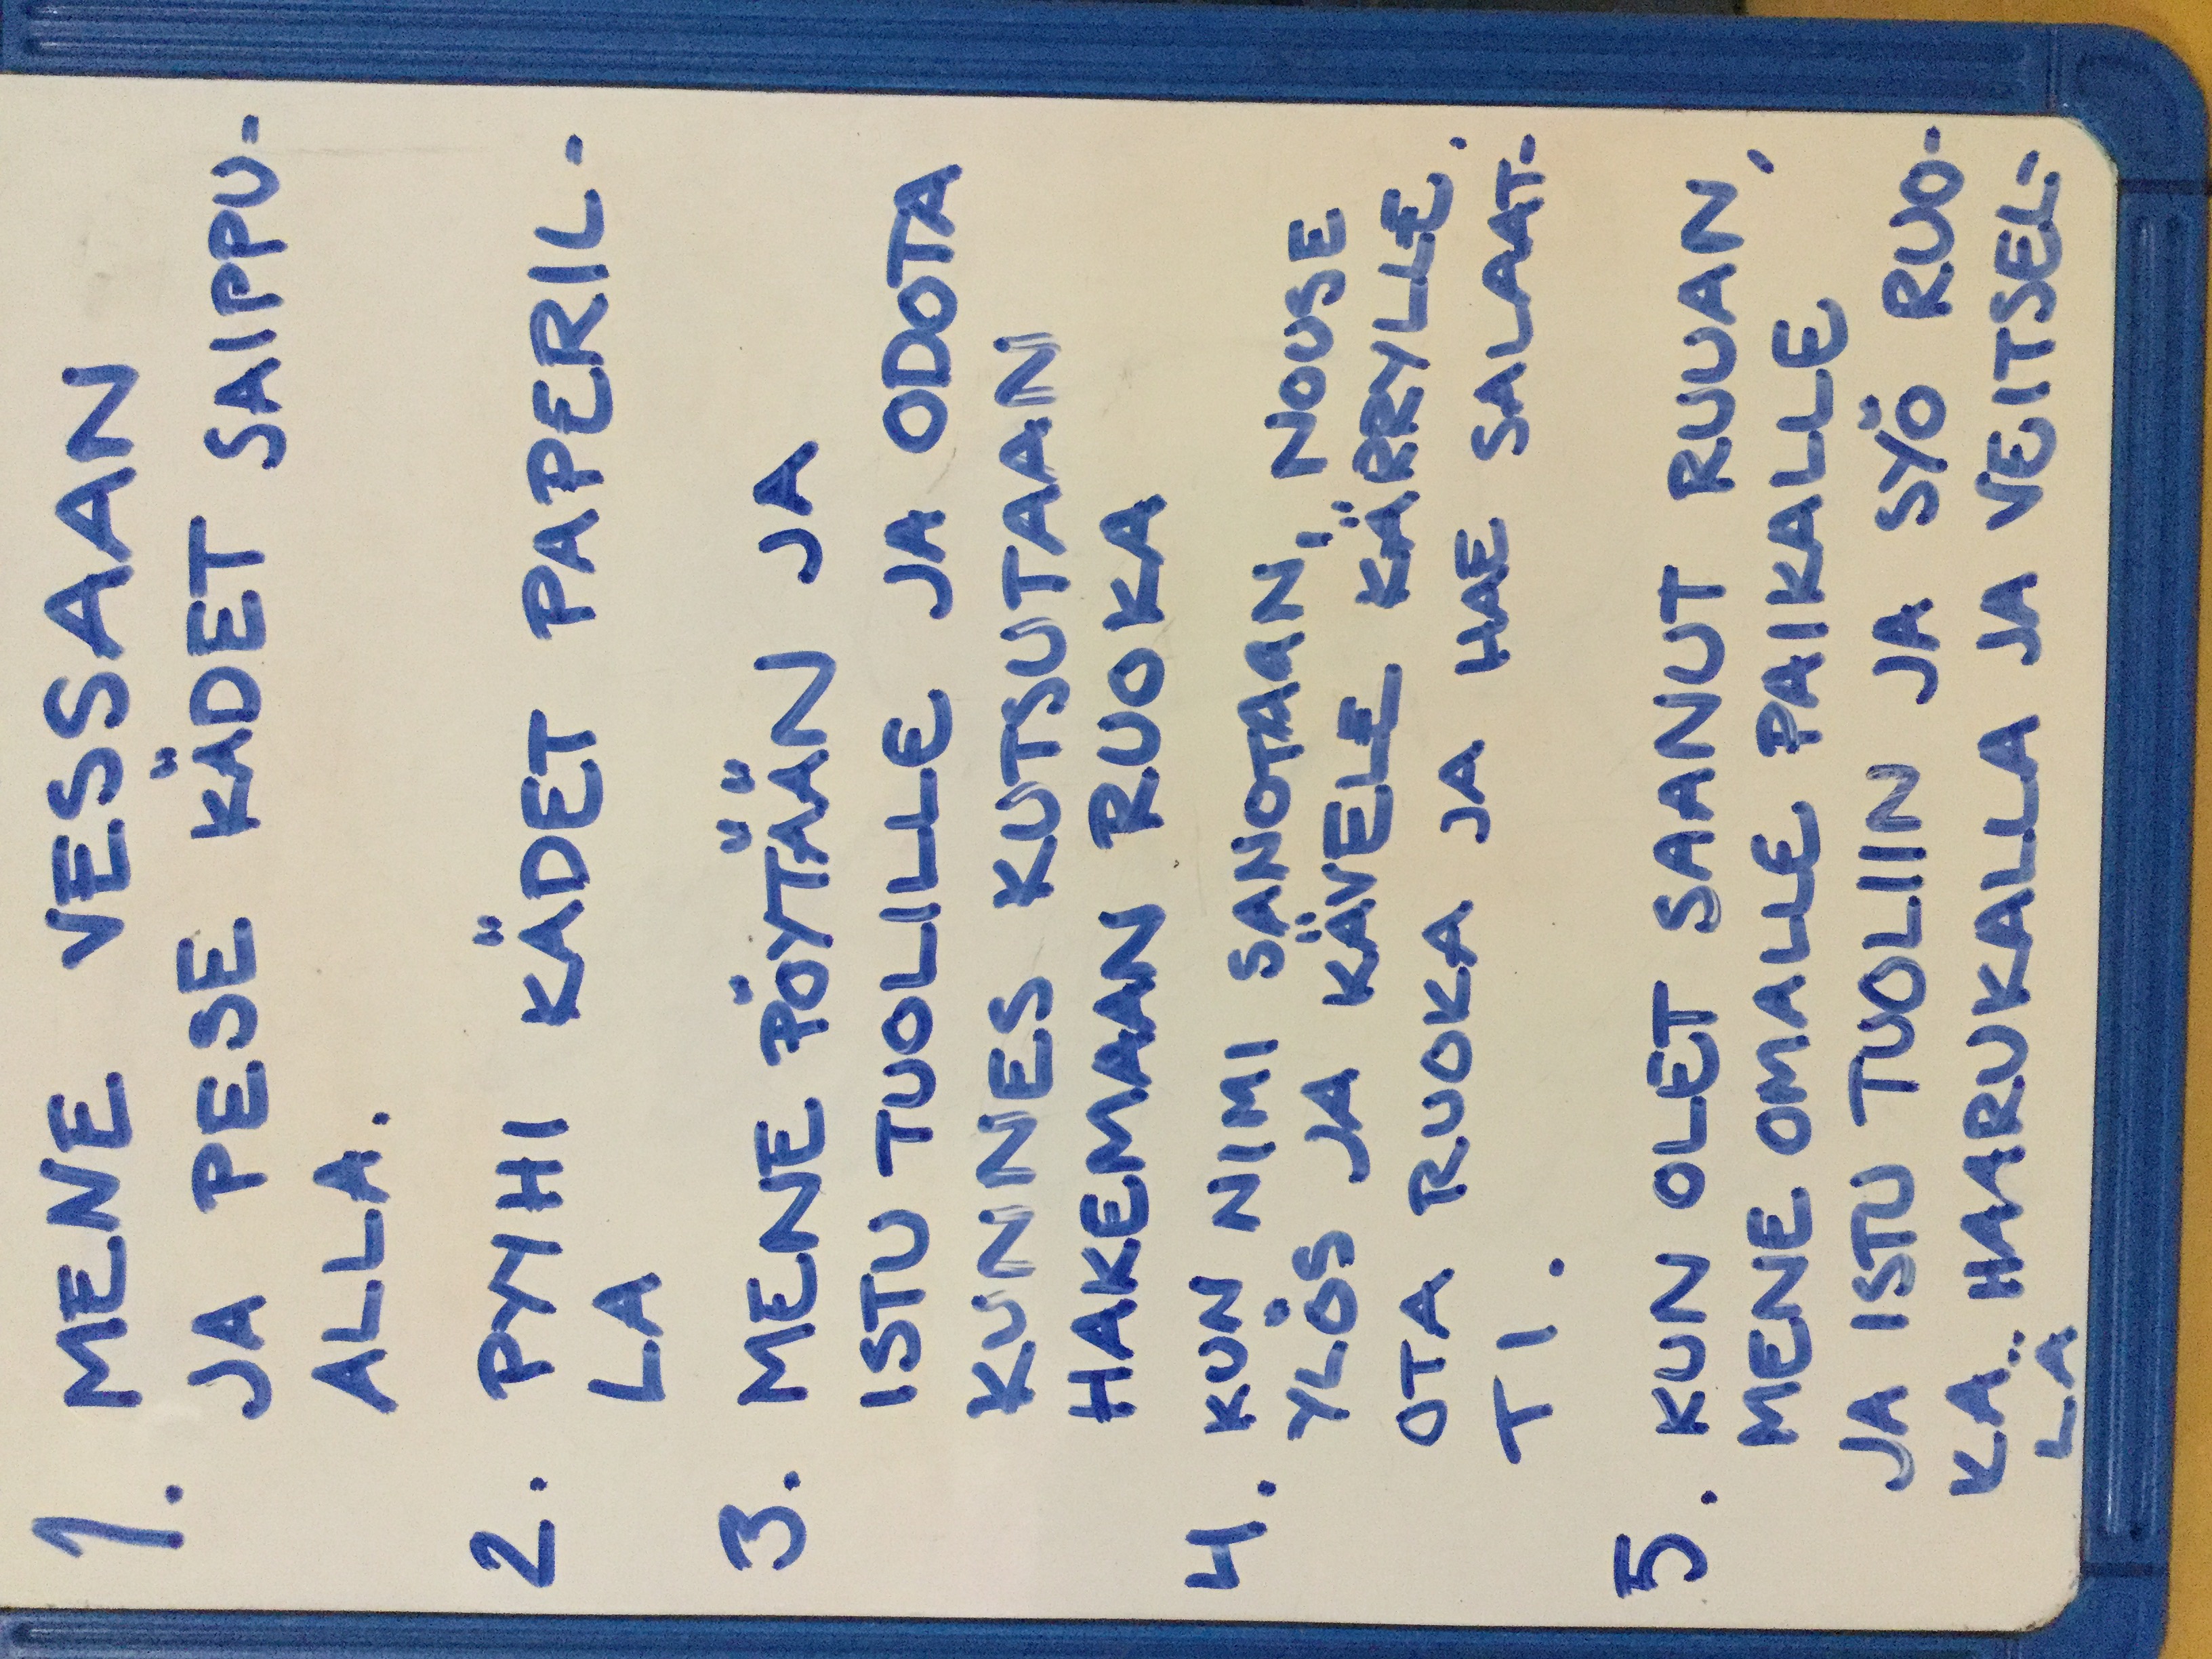 1. MENE VESSAAN
JA PESE KÄDET SAIPPU-
ALLA.
2. PYYHI KÄDET PAPERIL-
LA
3. MENE PÖYTÄÄN JA
ISTU TUOLILLE JA ODOTA
KUNNES KUTSUTAAN
HAKEMAAN RUOKA
4. KUN NIMI SANOTAAN, NOUSE
YLÖS JA KÄVELE KÄRRYLLE.
OTA RUOKA JA HAE SALAAT-
TI.
5. KUN OLET SAANUT RUUAN,
MENE OMALLE PAIKALLE
JA ISTU TUOLIIN JA SYÖ RUO-
KA.. HAARUKALLA JA VEITSEL-
LA